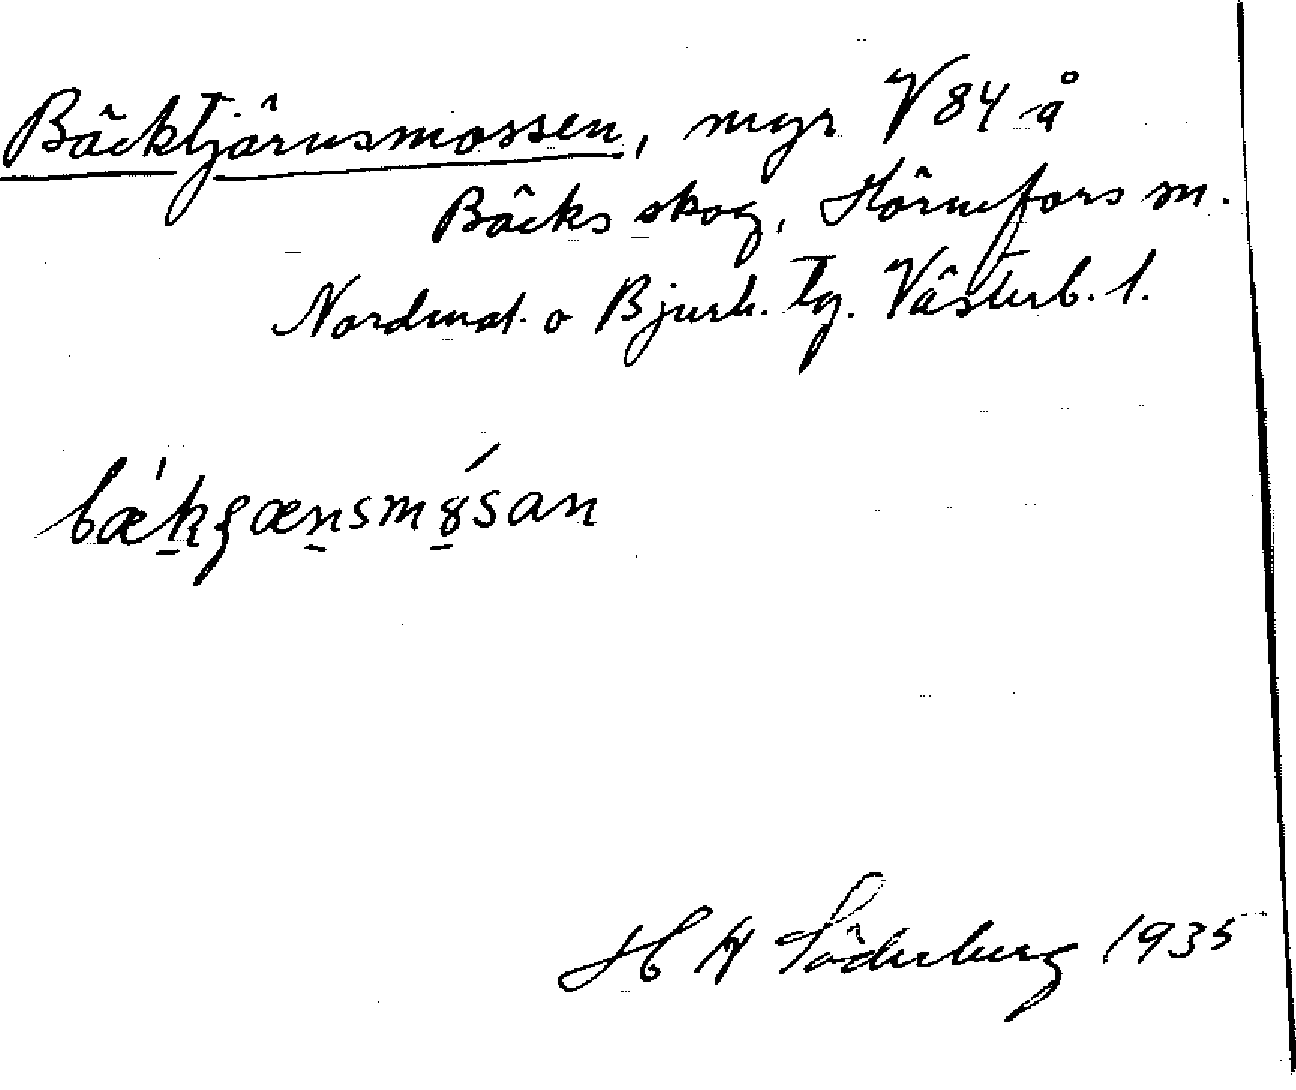 Bäcktjärnsmossen, mgr V 84 å
Bäcks skog, Hörnefors sn.
Nordmal. o Bjurh. tg. Västerb. l.
H Söderberg 1935